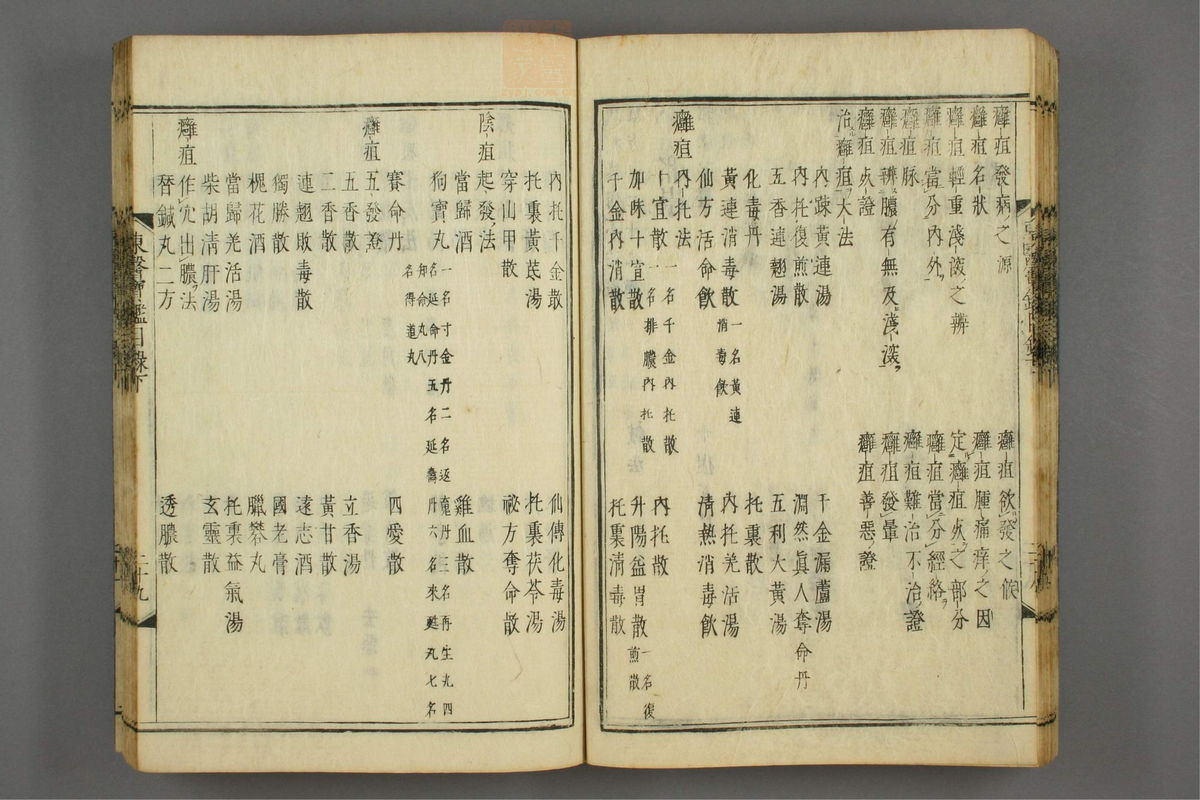 癰疽發病之源 癰疽欲發之候
癰疽名狀 癰疽腫痛痒之因
癰疽輕重淺深之辨 定癰疽死之部分
癰疽當分內外 癰疽當分經絡
癰疽脉 癰疽難治不治證
癰疽辨膿有無及淺深 癰疽發暈
癰疽死證 癰疽善惡證
治癰疽大法
內疎黃連湯 千金漏蘆湯
內托復煎散 淵然眞人奪命丹
五香連翹湯 五利大黃湯
化毒丹 托裏散
黃連消毒散 一名黃連消毒飮 內托羌活湯
仙方活命飮 淸熱消毒飮
癰疽內托法
十宣散 一名千金內托散 內托散
加味十宣散 一名排膿內托散 升陽益胃散 一名復煎散
千金內消散 托裏淸毒散
內托千金散 仙傳化毒湯
托裏黃芪湯 托裏茯苓湯
穿山甲散 祕方奪命散
陰疽起發法
當歸酒 雞血散
狗寶丸 一名寸金丹二名返魂丹三名再生丸四名延命丹五名延壽丹六名來甦丸七名知命丸八名得道丸
賽命丹 四愛散
癰疽五發證
五香散 立香湯
二香散 黃甘散
連翹敗毒散 遠志酒
獨勝散 國老膏
槐花酒 臘礬丸
當歸羌活湯 托裏益氣湯
柴胡淸肝湯 玄靈散
癰疽作穴出膿法
替鍼丸二方 透膿散
東醫寶鑑目錄下
二十九